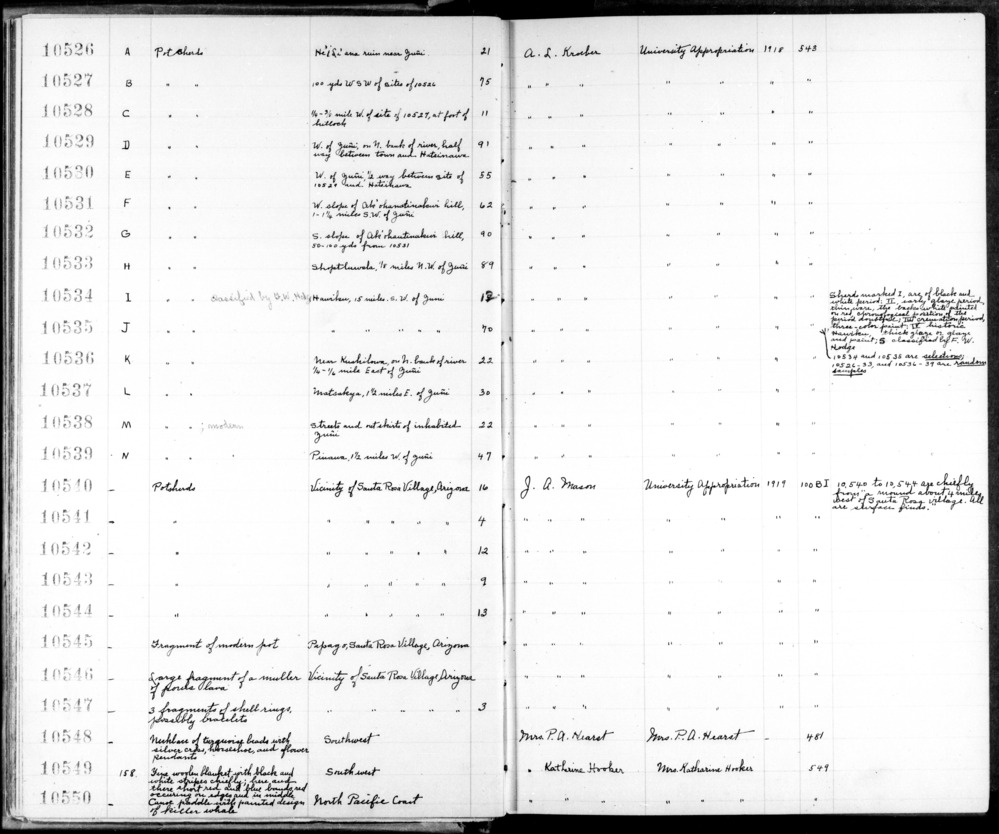 10526 A Pot sherds He'i'tli'ana ruin near Zuñi 21 A. L. Kroeber University Appropriation 1918 543
10527 B " " 100 yds WSW of sites of 10526 75 " " " " " " "
10528 C " " mile W. of site of 10527, at foot of 11 " " " " " " "
hillock
10529 D " " W. of Zuñi, on N. bank of river, half 91 " " " " " " "
way between town and Hateinawa
10530 E " " W. of Zuñi, ½ way between site of 55 " " " " " " "
10529 and Hateinawa
10531 F " " W. slope of hill, 62 " " " " " " "
miles S.W. of Zuñi
10532 G " " S. slope of hill, 90 " " " " " " "
50-100 yds from 10531
10533 H " " Shoptluwala, 1/8 miles N.W. of Zuñi 89 " " " " " " "
10534 I " " classified by F.W. Hodge Hawikuh, 15 miles S.W. of Zuni " " " " " " " Sherds marked I, are of black and
white period; II, early glaze period,
thin ware, the
on red, chronological position of the
period doubtful; III cremation period,
three-color paint; IV historic
Hawikuh, thick glaze or glaze
and paint; S classified by F. W.
Hodge
10535 J " " " " " " 70 " " " " " " "
10534 and 10535 are selections;
10526-33, and 10536-39 are random
samples
10536 K " " Near Kushilowa, on N. bank of river 22 " " " " " " "
mile East of Zuñi
10537 L " " Matsakya, 1½ miles E. of Zuñi 30 " " " " " " "
10538 M " " ; modern Streets and outskirts of inhabited 22 " " " " " " "
Zuñi
10539 N " " Pinawa, 1½ miles W. of Zuñi 47 " " " " " " "
10540 – Potsherds Vicinity of Santa Rosa Village, Arizona 16 J. A. Mason University Appropriation 1919 100 BI 10,540 to 10,544 are chiefly
from "a mound about 4 miles
west of Santa Rosa Village. All
are surface finds."
10541 – " " " " " 4 " " " " " " "
10542 – " " " " " 12 " " " " " " "
10543 – " " " " " 9 " " " " " " "
10544 – " " " " " 13 " " " " " " "
10545 – Fragment of modern pot Papago, Santa Rosa Village, Arizona " " " " " " "
10546 – Large fragment of a muller Vicinity of Santa Rosa Village, Arizona " " " " " " "
of porous lava
10547 – 3 fragments of shell rings, " " " " " 3 " " " " " " "
possibly bracelets
10548 – Necklace of turquoise beads with Southwest Mrs. P. A. Hearst Mrs. P. A. Hearst –
silver cross, horseshoe, and flower
pendants
10549 158. Fine woolen blanket with black and Southwest " Katherine Hooker Mrs Katharine Hooker 549
white stripes chiefly; here and
there short red and blue bands, red
occuring on edges and in middle
10550 – Canoe paddle with painted design North Pacific Coast " " " " "
of killer whale